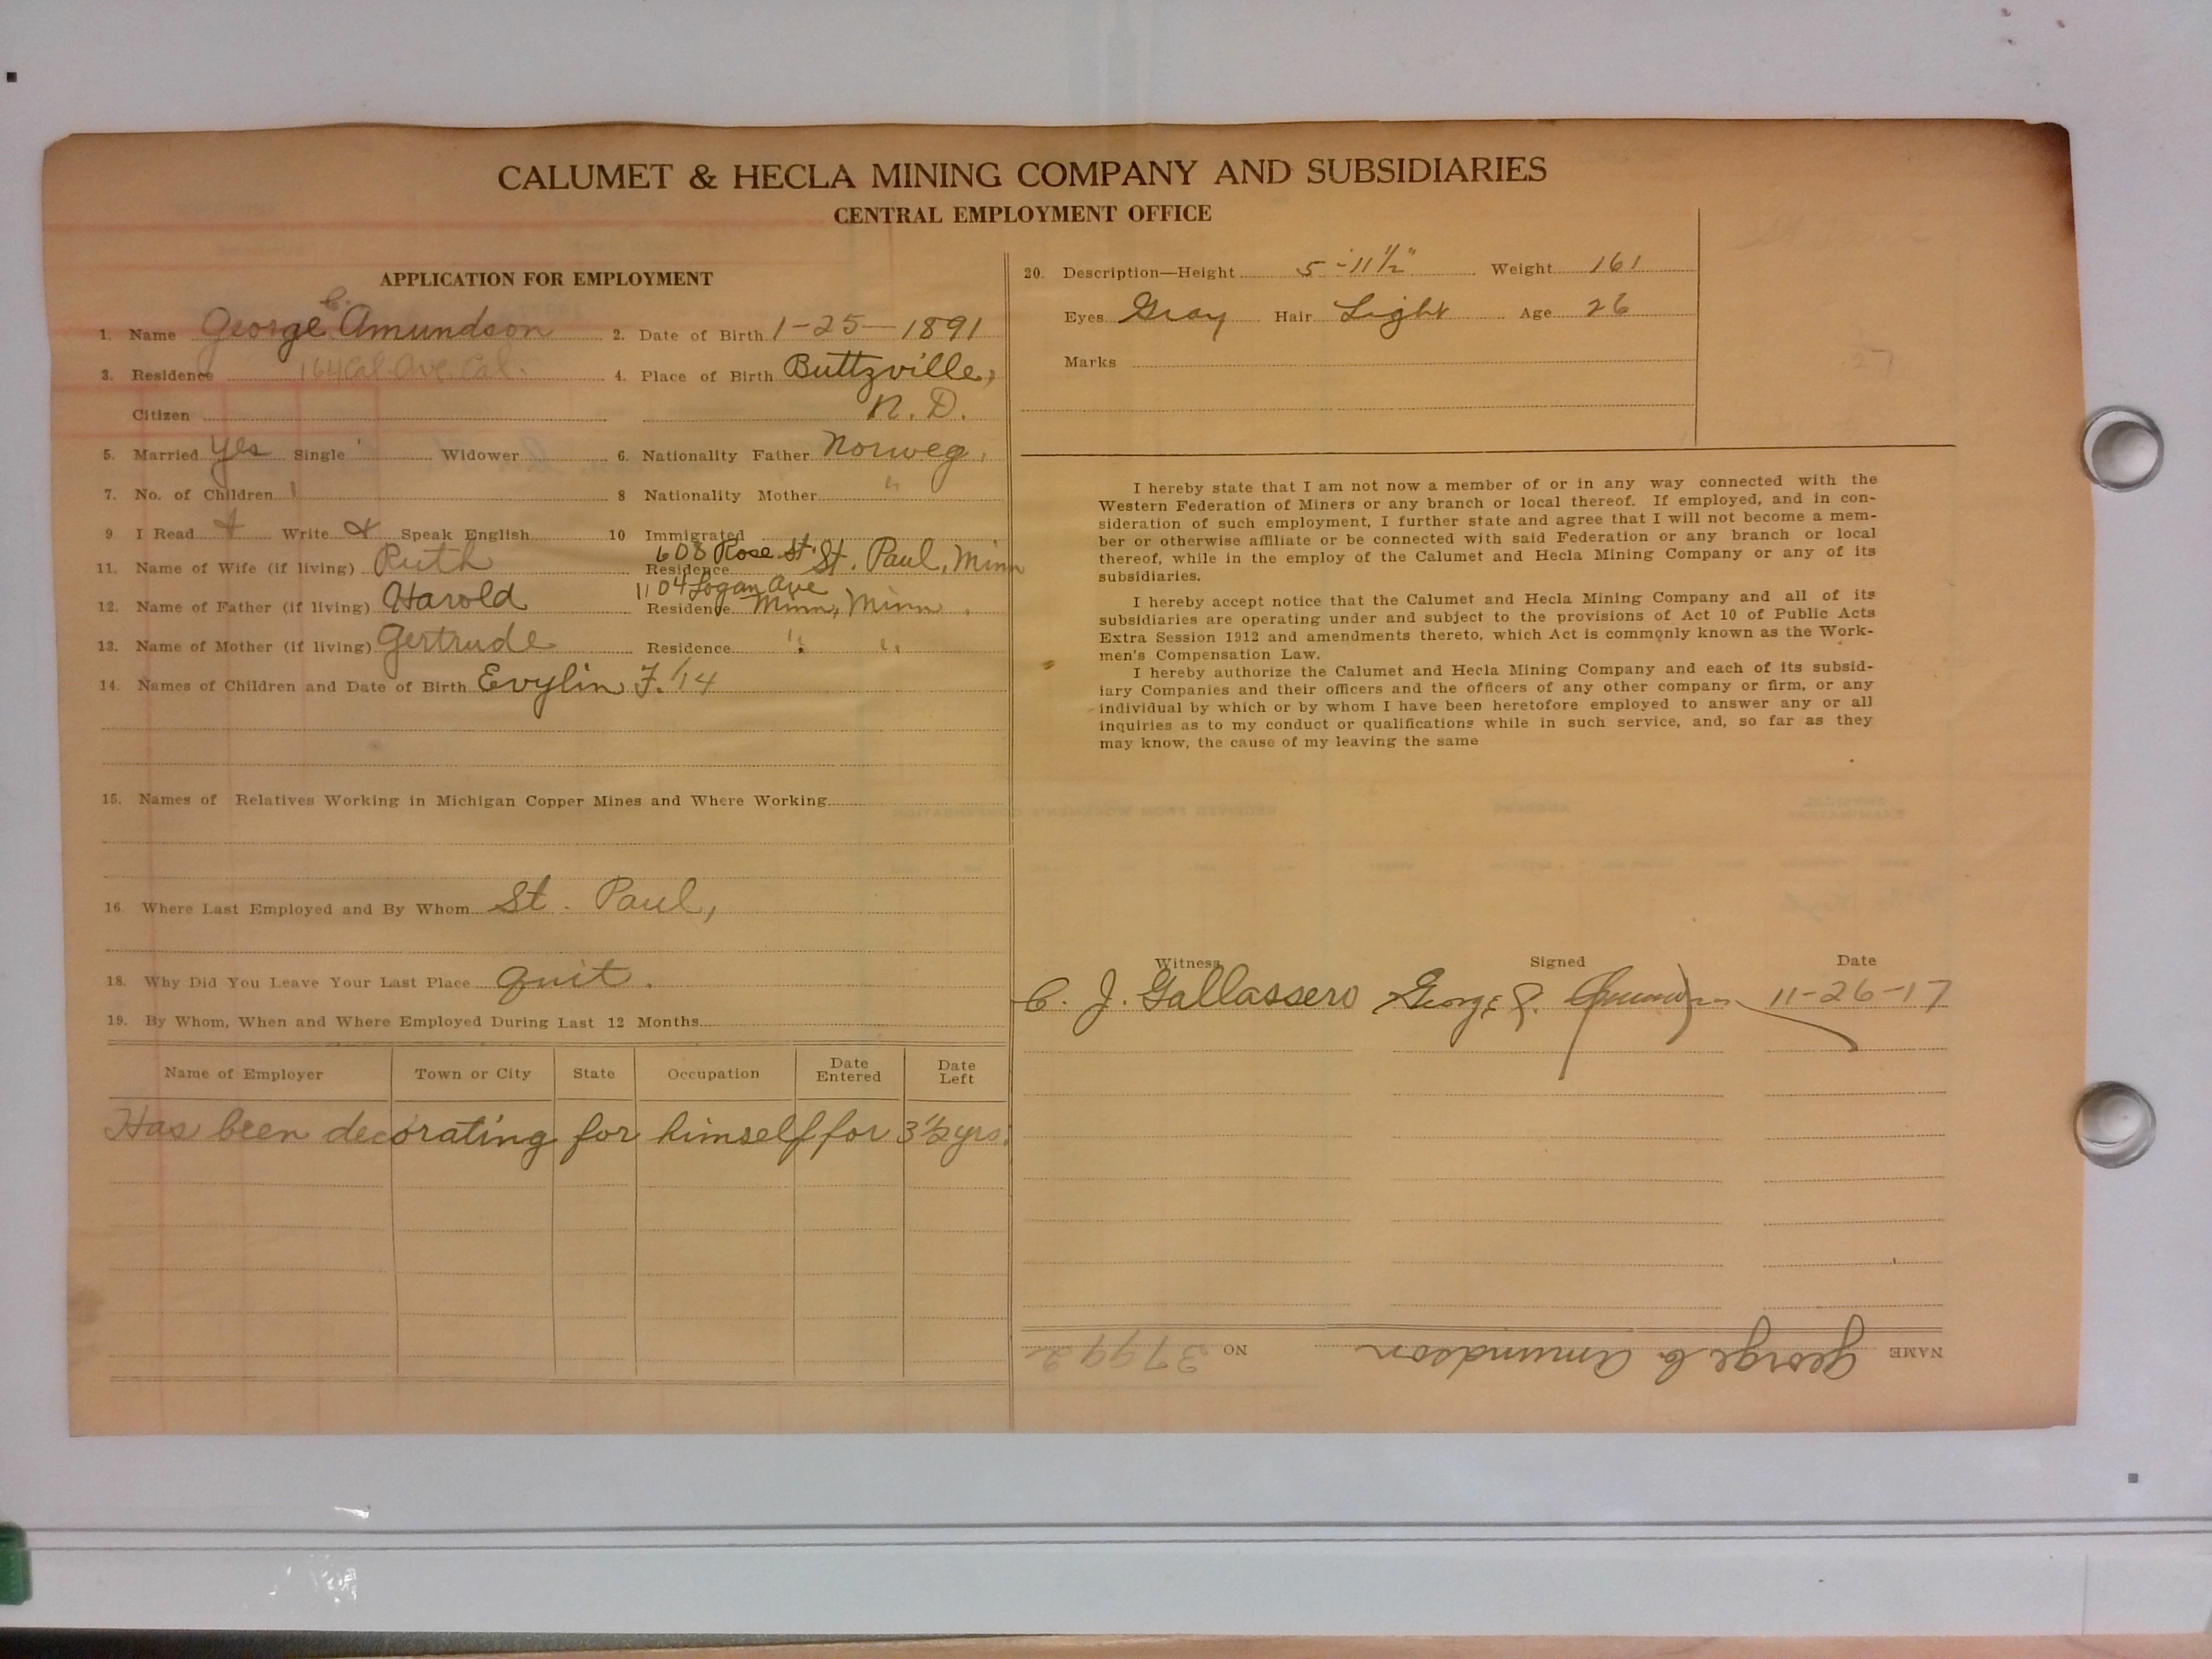 CALUMET & HECLA MINING COMPANY AND SUBSIDIARIES
CENTRAL EMPLOYMENT OFFICE
APPLICATION FOR EMPLOYMENT
1. Name George C. Amundson 2. Date of Birth 1-25-1891
3. Residence 164 Cal. Ave. Cal. 4. Place of Birth Buttzville,
Citizen N. D.
5. Married yes Single Widower 6. Nationality Father Norweg.
7. No. of Children 1 8 Nationality Mother "
9 I Read Write Speak English 10 Immigrated
608 Rose St.
11. Name of Wife (if living) Ruth Residence St. Paul, Minn
1104 Logan Ave
12. Name of Father (if living) Harold Residence Minn, Minn.
13. Name of Mother (if living) Gertrude Residence " "
14. Names of Children and Date of Birth Evylin F. 1/14
15. Names of Relatives Working in Michigan Copper Mines and Where Working
16. Where Last Employed and By Whom St. Paul,
18. Why Did You Leave Your Last Place quit.
19. By Whom, When and Where Employed During Last 12 Months
Name of Employer Town or City State Occupation Date Entered Date Left
Has been decorating for himself for 3 1/2 yrs.
20. Description—Height 5-11 1/2" Weight 161
Eyes Gray Hair Light Age 26
Marks
I hereby state that I am not now a member of or in any way connected with the
Western Federation of Miners or any branch or local thereof. If employed, and in con-
sideration of such employment, I further state and agree that I will not become a mem-
ber or otherwise affiliate or be connected with said Federation or any branch or local
thereof, while in the employ of the Calumet and Hecla Mining Company or any of its
subsidiaries.
I hereby accept notice that the Calumet and Hecla Mining Company and all of its
subsidiaries are operating under and subject to the provisions of Act 10 of Public Acts
Extra Session 1912 and amendments thereto, which Act is commonly known as the Work-
men's Compensation Law.
I hereby authorize the Calumet and Hecla Mining Company and each of its subsid-
iary Companies and their officers and the officers of any other company or firm, or any
individual by which or by whom I have been heretofore employed to answer any or all
inquiries as to my conduct or qualifications while in such service, and, so far as they
may know, the cause of my leaving the same
Witness Signed Date
C. J. Gallassero George 11-26-17
NAME George C. Amundson NO 37992